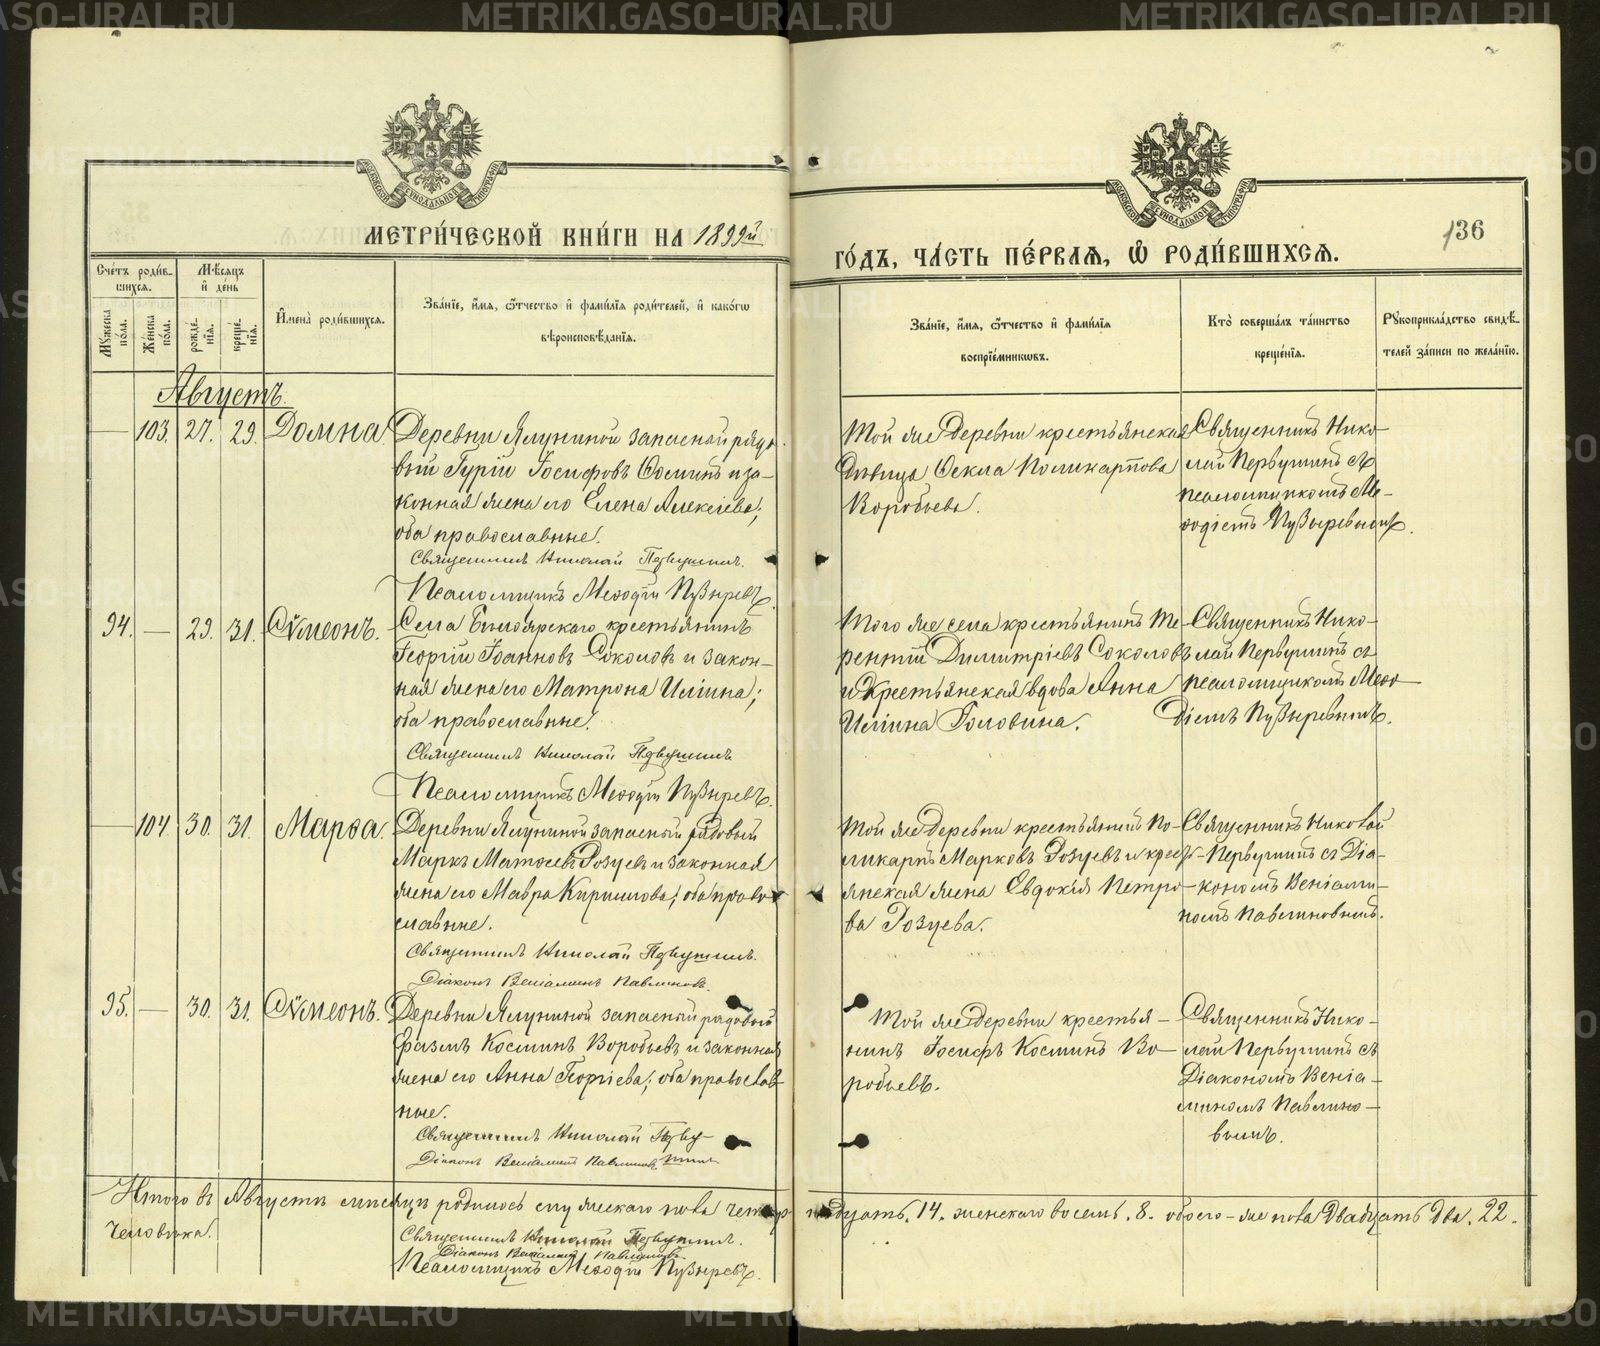 МЕТРИ́ЧЕСКОЙ КНИ́ГИ НА 1899й
ГО́ДЪ, ЧА́СТЬ ПЕ́РВАЯ, Ѡ РОДИ́ВШИХСЯ.
136
Сче́тъ роди́вшихся.
Мѣ́сяцъ и҆ де́нь
Мꙋ́жеска по́ла.
Же́нска по́ла.
рожде́нїѧ.
креще́нїѧ.
И҆мена̀ роди́вшихсѧ.
Зва́нїе, и҆́мѧ, ѻ҆́тчество и҆ фами́лїѧ роди́телей, и҆ како́гѡ
вѣроисповѣ́данїѧ.
Зва́нїе, и҆́мѧ, ѻ҆́тчество и҆ фами́лїѧ
воспрїе́мникѡвъ.
Кто̀ соверша́лъ та́инство
креще́нїѧ.
Рꙋкоприкла́дство свидѣ́телей за́писи по жела́нїю.
Августъ.
— 103. 27. 29. Домна
Деревни Ялуниной запасный рядо-
вый Гурій Іосифовъ Ѳоминъ и за-
конная жена его Елена Алексіева;
оба православные.
Священникъ Николай Первушинъ.
Псаломщикъ Меѳодій Пузыревъ.
Той же деревни крестьянская
дѣвица Ѳекла Поликарпова
Воробьева.
Священникъ Нико-
лай Первушинъ съ
псаломщикомъ Ме-
ѳодіемъ Пузыревымъ.
94. — 29. 31. Сѵмеонъ.
Села Бѣлоярскаго крестьянинъ
Георгій Іоанновъ Соколовъ и закон-
ная жена его Матрона Иліина;
оба православные.
Священникъ Николай Первушинъ
Псаломщикъ Меѳодій Пузыревъ.
Того же села крестьянинъ Те-
рентій Димитріевъ Соколовъ
и крестьянская вдова Анна
Иліина Головина.
Священникъ Нико-
лай Первушинъ съ
псаломщикомъ Меѳо-
діемъ Пузыревымъ.
— 104. 30. 31. Марѳа.
Деревни Ялуниной запасный рядовый
Маркъ Матѳеевъ Розуевъ и законная
жена его Мавра Кириллова; оба право-
славные.
Священникъ Николай Первушинъ.
Діаконъ Веніаминъ Павлиновъ.
Той же деревни крестьянинъ По-
ликарпъ Марковъ Розуевъ и кресть-
янская жена Евдокія Петро-
ва Розуева.
Священникъ Николай
Первушинъ съ Діа-
кономъ Веніами-
номъ Павлиновымъ.
95. — 30. 31. Сѵмеонъ.
Деревни Ялуниной запасный рядовый
Еразмъ Косминъ Воробьевъ и законная
жена его Анна Георгіева; оба православ-
ные.
Священникъ Николай Перву-
шинъ
Діаконъ Веніаминъ Павлиновъ
Той же деревни крестья-
нинъ Іосифъ Косминъ Во-
робьевъ.
Священникъ Нико-
лай Первушинъ съ
Діакономъ Веніа-
миномъ Павлино-
вымъ.
Итого въ Августѣ мѣсяцѣ родилось мужескаго пола четыр надцать. 14. женскаго восемь. 8. обоего-же пола двадцать два. 22.
человѣка.
Священникъ Николай Первушинъ.
Діаконъ Веніаминъ Павлиновъ.
Псаломщикъ Меѳодій Пузыревъ.
METRIKI.GASO-URAL.RU